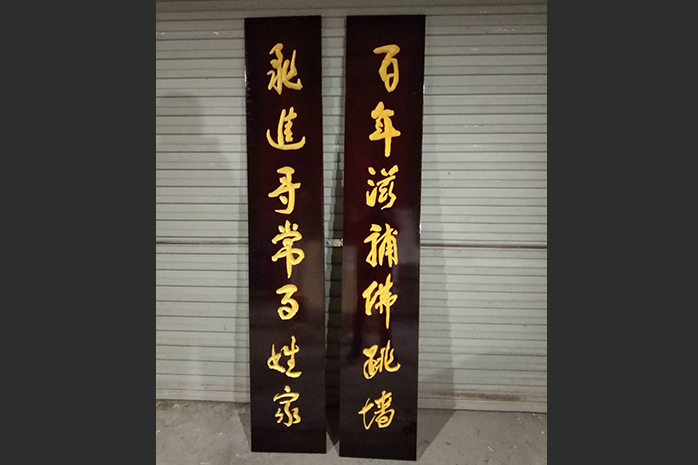 百年滋補佛跳墙
飛進寻常百姓家